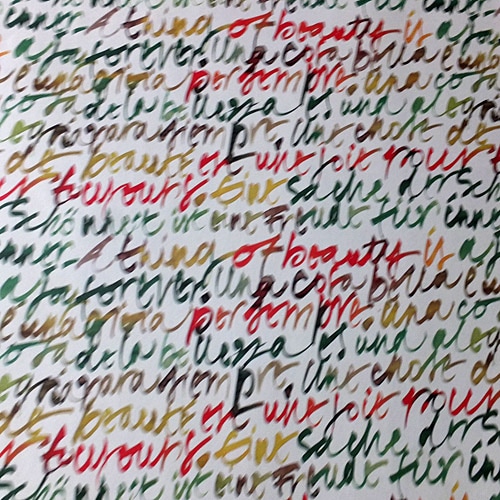 immer A thing of beauty is a
a joy forever. Una cosa bella è un
è una gioia per sempre. Una cosa
cosa de la belleza es una alegr
egria para siempre. Une chose de
de beauté est une joie pour
toujours. Eine Sache der Sch
Schönheit ist eine Freude für imm
immer A thing of beauty is a
a joy forever. Una cosa bella è un
è una gioia per sempre. Una cosa
cosa de la belleza es una alegr
egria para siempre. Une chose de
de beauté est une joie pour
toujours. Eine Sache der Sch
Schönheit ist eine Freude für imm